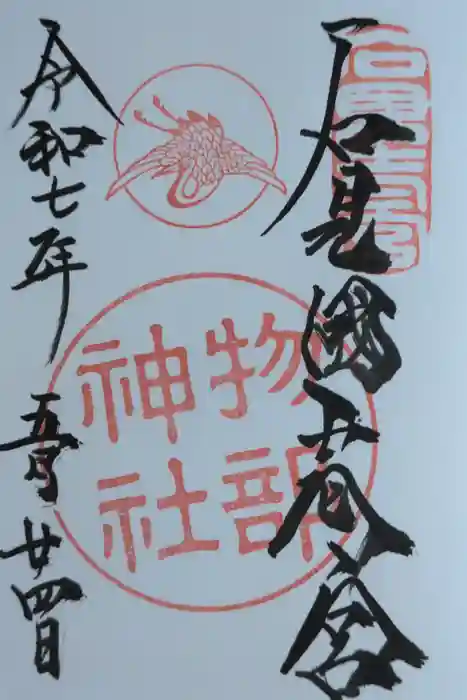 石見國宮
物部
神社
令和七年 五月廿四日